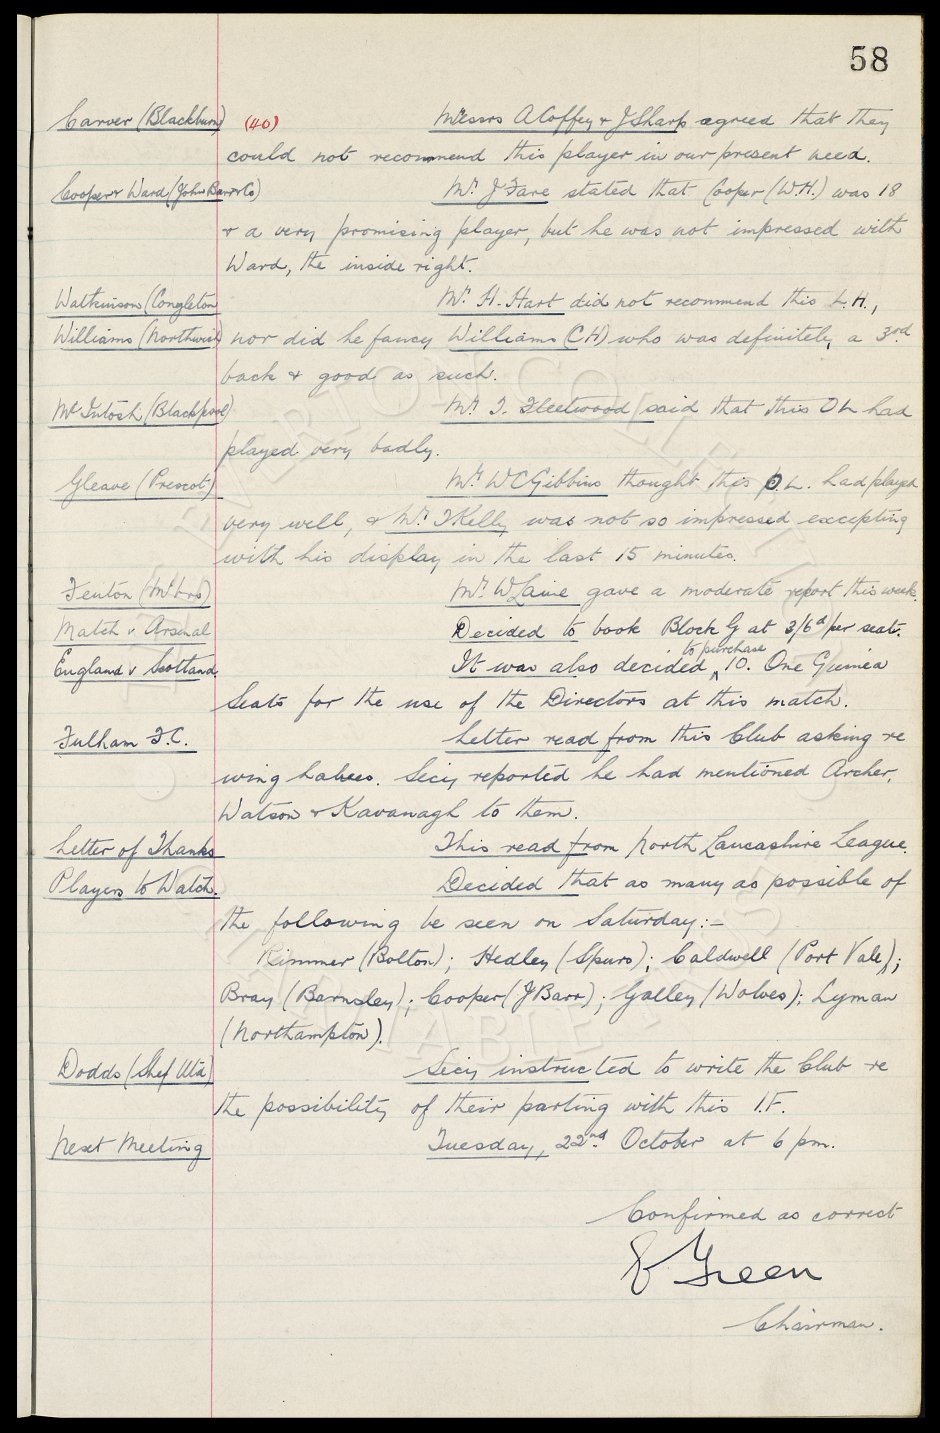 58
Carver (Blackburn) (40) Messrs A Coffey & J Sharp agreed that they
could not recommend this player in our present need.
Cooper & Ward (John Barr & Co) Mr. J Fare stated that Cooper (W.H.) was 18
& a very promising player, but he was not impressed with
Ward, the inside right.
Watkinson (Congleton Mr. H. Hart did not recommend this L.H.,
Williams (Northwich) nor did he fancy Williams (C.H) who was definitely a 3rd
back & good as such.
McIntosh (Blackpool) Mr. T. Fleetwood said that this O L had
played very badly.
Gleave (Prescot) Mr. W C Gibbins thought this O.L. had played
very well, & Mr. T Kelly was not so impressed excepting
with his display in the last 15 minutes.
Fenton (M'bro) Mr. W Laine gave a moderate report this week.
Match v. Arsenal Decided to book Block G at 3/6d per seat.
England v Scotland. It was also decided ^to purchase 10. One Guinea
Seats for the use of the Directors at this match.
Fulham F.C. Letter read from this Club asking re
wing halves. Secy reported he had mentioned Archer,
Watson & Kavanagh to them.
Letter of Thanks This read from North Lancashire League.
Players to Watch. Decided that as many as possible of
the following be seen on Saturday:-
Rimmer (Bolton); Hedley (Spurs); Caldwell (Port Vale);
Bray (Barnsley); Cooper (J Barr); Galley (Wolves); Lyman
(Northampton).
Dodds (Shef Utd) Secy instructed to write the Club re
the possibility of their parting with this I.F.
Next Meeting Tuesday, 22nd October at 6 pm.
Confirmed as correct
E Green
Chairman.